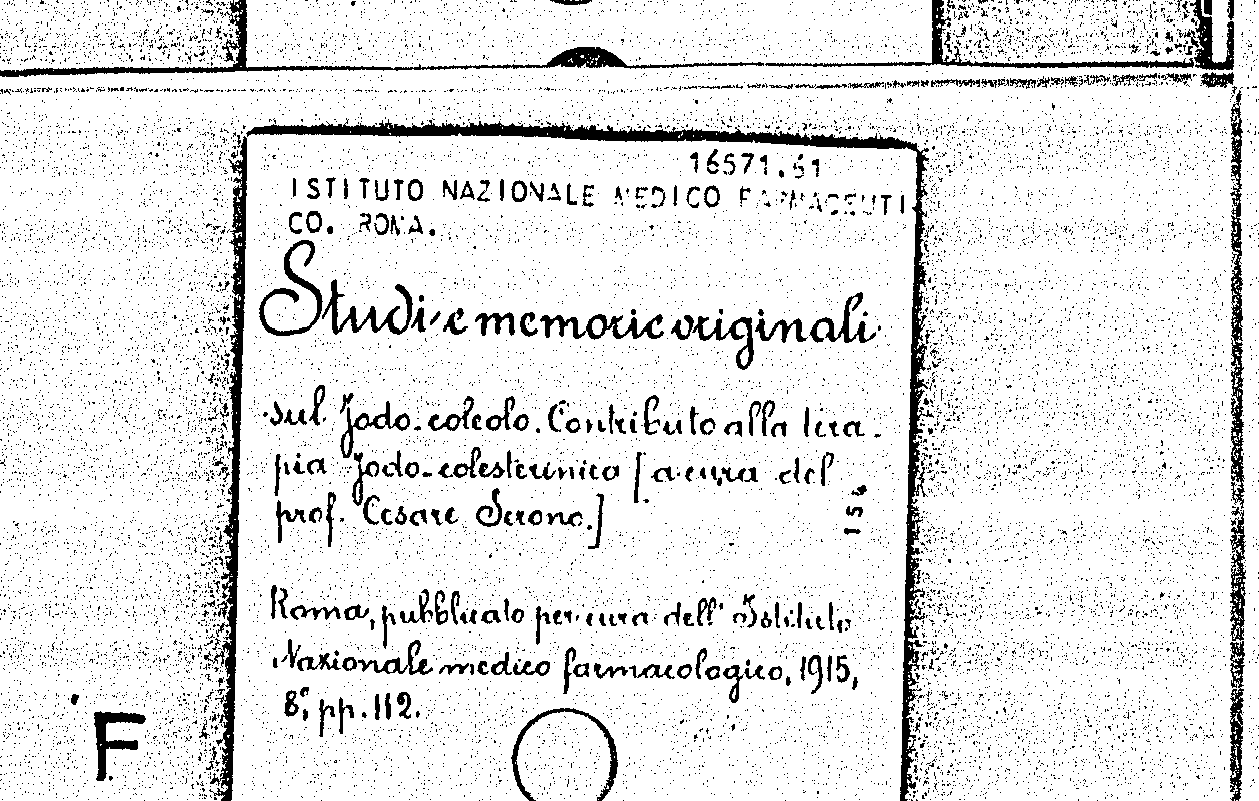 16571.61
ISTITUTO NAZIONALE MEDICO FARMACEUTI
CO. ROMA.
Studi e memorie originali
sul Jodo-colcolo. Contributo alla tera-
pia Jodo-colesterinica [a cura del
prof. Cesare Serono.]
156
Roma, pubblicato per cura dell' Istituto
Nazionale medico farmacologico, 1915,
8°, pp. 112.
F